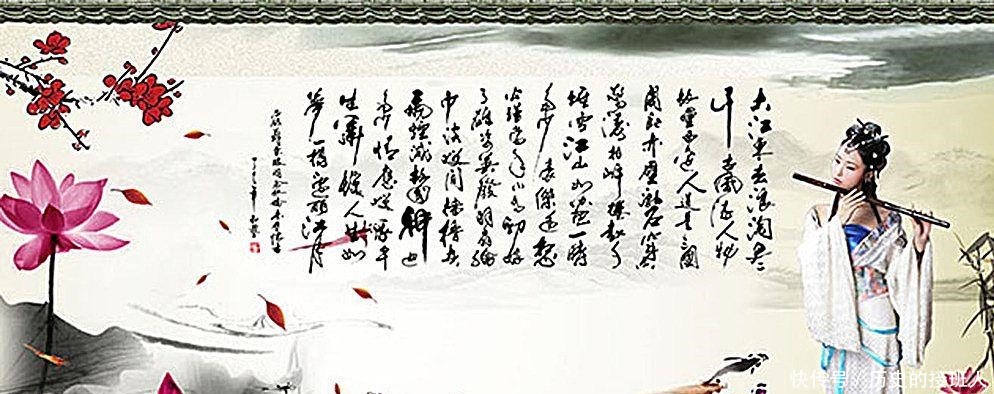 大江東去浪淘盡
千古風流人物
故壘西邊人道是三國
周郎赤壁亂石穿空
驚濤拍岸捲起千
堆雪江山如畫一時
多少豪傑遙想
公瑾當年小喬初嫁
了雄姿英發羽扇綸
巾談笑間檣櫓灰
飛煙滅故國神遊
多情應笑我早
生華髮人生如
夢一樽還酹江月
快传号/历史的接班人